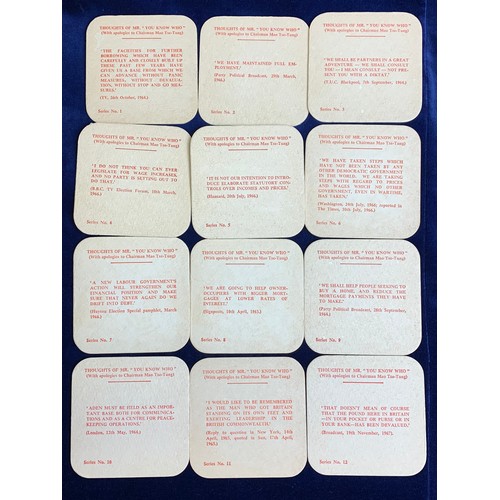 THOUGHTS OF MR. "YOU KNOW WHO"
(With apologies to Chairman Mao Tse-Tung)
"THE FACILITIES FOR FURTHER
BORROWING WHICH HAVE BEEN
CAREFULLY AND CLOSELY BUILT UP
THESE PAST FEW YEARS HAVE
GIVEN US A BASE FROM WHICH WE
CAN ADVANCE WITHOUT PANIC
MEASURES, WITHOUT DEVALUA-
TION, WITHOUT STOP AND GO
MEASURES."
(TV, 26th October, 1964.)
Series No. 1
THOUGHTS OF MR. "YOU KNOW WHO"
(With apologies to Chairman Mao Tse-Tung)
"WE HAVE MAINTAINED FULL EM-
PLOYMENT."
(Party Political Broadcast, 29th March,
1966.)
Series No. 2
THOUGHTS OF MR. "YOU KNOW WHO"
(With apologies to Chairman Mao Tse-Tung)
"WE SHALL BE PARTNERS IN A GREAT
ADVENTURE — WE SHALL CONSULT
YOU — I MEAN CONSULT — NOT PRE-
SENT YOU WITH A DIKTAT."
(T.U.C. Blackpool, 7th September, 1964.)
Series No. 3
THOUGHTS OF MR. "YOU KNOW WHO"
(With apologies to Chairman Mao Tse-Tung)
"I DO NOT THINK YOU CAN EVER
LEGISLATE FOR WAGE INCREASES,
AND NO PARTY IS SETTING OUT TO
DO THAT."
(B.B.C. TV Election Forum, 10th March,
1966.)
Series No. 4
THOUGHTS OF MR. "YOU KNOW WHO"
(With apologies to Chairman Mao Tse-Tung)
"IT IS NOT OUR INTENTION TO INTRO-
DUCE ELABORATE STATUTORY CON-
TROLS OVER INCOMES AND PRICES."
(Hansard, 20th July, 1966.)
Series No. 5
THOUGHTS OF MR. "YOU KNOW WHO"
(With apologies to Chairman Mao Tse-Tung)
"WE HAVE TAKEN STEPS WHICH
HAVE NOT BEEN TAKEN BY ANY
OTHER DEMOCRATIC GOVERNMENT
IN THE WORLD. WE ARE TAKING
STEPS WITH REGARD TO PRICES
AND WAGES WHICH NO OTHER
GOVERNMENT, EVEN IN WARTIME,
HAS TAKEN."
(Washington, 29th July, 1966; reported in
The Times, 30th July, 1966.)
Series No. 6
THOUGHTS OF MR. "YOU KNOW WHO"
(With apologies to Chairman Mao Tse-Tung)
"A NEW LABOUR GOVERNMENT'S
ACTION WILL STRENGTHEN OUR
FINANCIAL POSITION AND MAKE
SURE THAT NEVER AGAIN DO WE
DRIFT INTO DEBT."
Election Special pamphlet, March
1966.)
Series No. 7
THOUGHTS OF MR. "YOU KNOW WHO"
(With apologies to Chairman Mao Tse-Tung)
"WE ARE GOING TO HELP OWNER-
OCCUPIERS WITH BIGGER MORT-
GAGES AT LOWER RATES OF
INTEREST."
(Signposts, 18th April, 1963.)
Series No. 8
THOUGHTS OF MR. "YOU KNOW WHO"
(With apologies to Chairman Mao Tse-Tung)
"WE SHALL HELP PEOPLE SEEKING TO
BUY A HOME, AND REDUCE THE
MORTGAGE PAYMENTS THEY HAVE
TO MAKE."
(Party Political Broadcast, 28th September,
1964.)
Series No. 9
THOUGHTS OF MR. "YOU KNOW WHO"
(With apologies to Chairman Mao Tse-Tung)
"ADEN MUST BE HELD AS AN IMPOR-
TANT BASE BOTH FOR COMMUNICA-
TIONS AND AS A CENTRE FOR PEACE-
KEEPING OPERATIONS."
(London, 12th May, 1960.)
Series No. 10
THOUGHTS OF MR. "YOU KNOW WHO"
(With apologies to Chairman Mao Tse-Tung)
"I WOULD LIKE TO BE REMEMBERED
AS THE MAN WHO GOT BRITAIN
STANDING ON ITS OWN FEET AND
EXERTING LEADERSHIP IN THE
BRITISH COMMONWEALTH."
(Reply to question in New York, 14th
April, 1965, quoted in 17th
April 1965.)
Series No. 11
THOUGHTS OF MR. "YOU KNOW WHO"
(With apologies to Chairman Mao Tse-Tung)
"THAT DOESN'T MEAN OF COURSE
THAT THE POUND HERE IN BRITAIN
— IN YOUR POCKET OR PURSE OR IN
YOUR BANK—HAS BEEN DEVALUED."
(Broadcast, 19th November, 1967).
Series No. 12